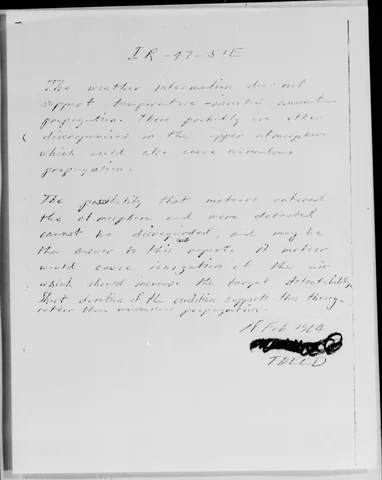 IR-47-51E
The weather information does not
support temperature-inverted anomalous
propagation. There probably are other
discrepancies in the upper atmosphere
which could also cause anomalous
propagation.
The possibility that meteors entered
the atmosphere and were detected
cannot be disregarded, and may be
the answer to this report. A meteor
would cause ionization of the air
which should increase the target detectability.
Short duration of the condition supports this theory
rather than anomalous propagation.
18 Feb 1964